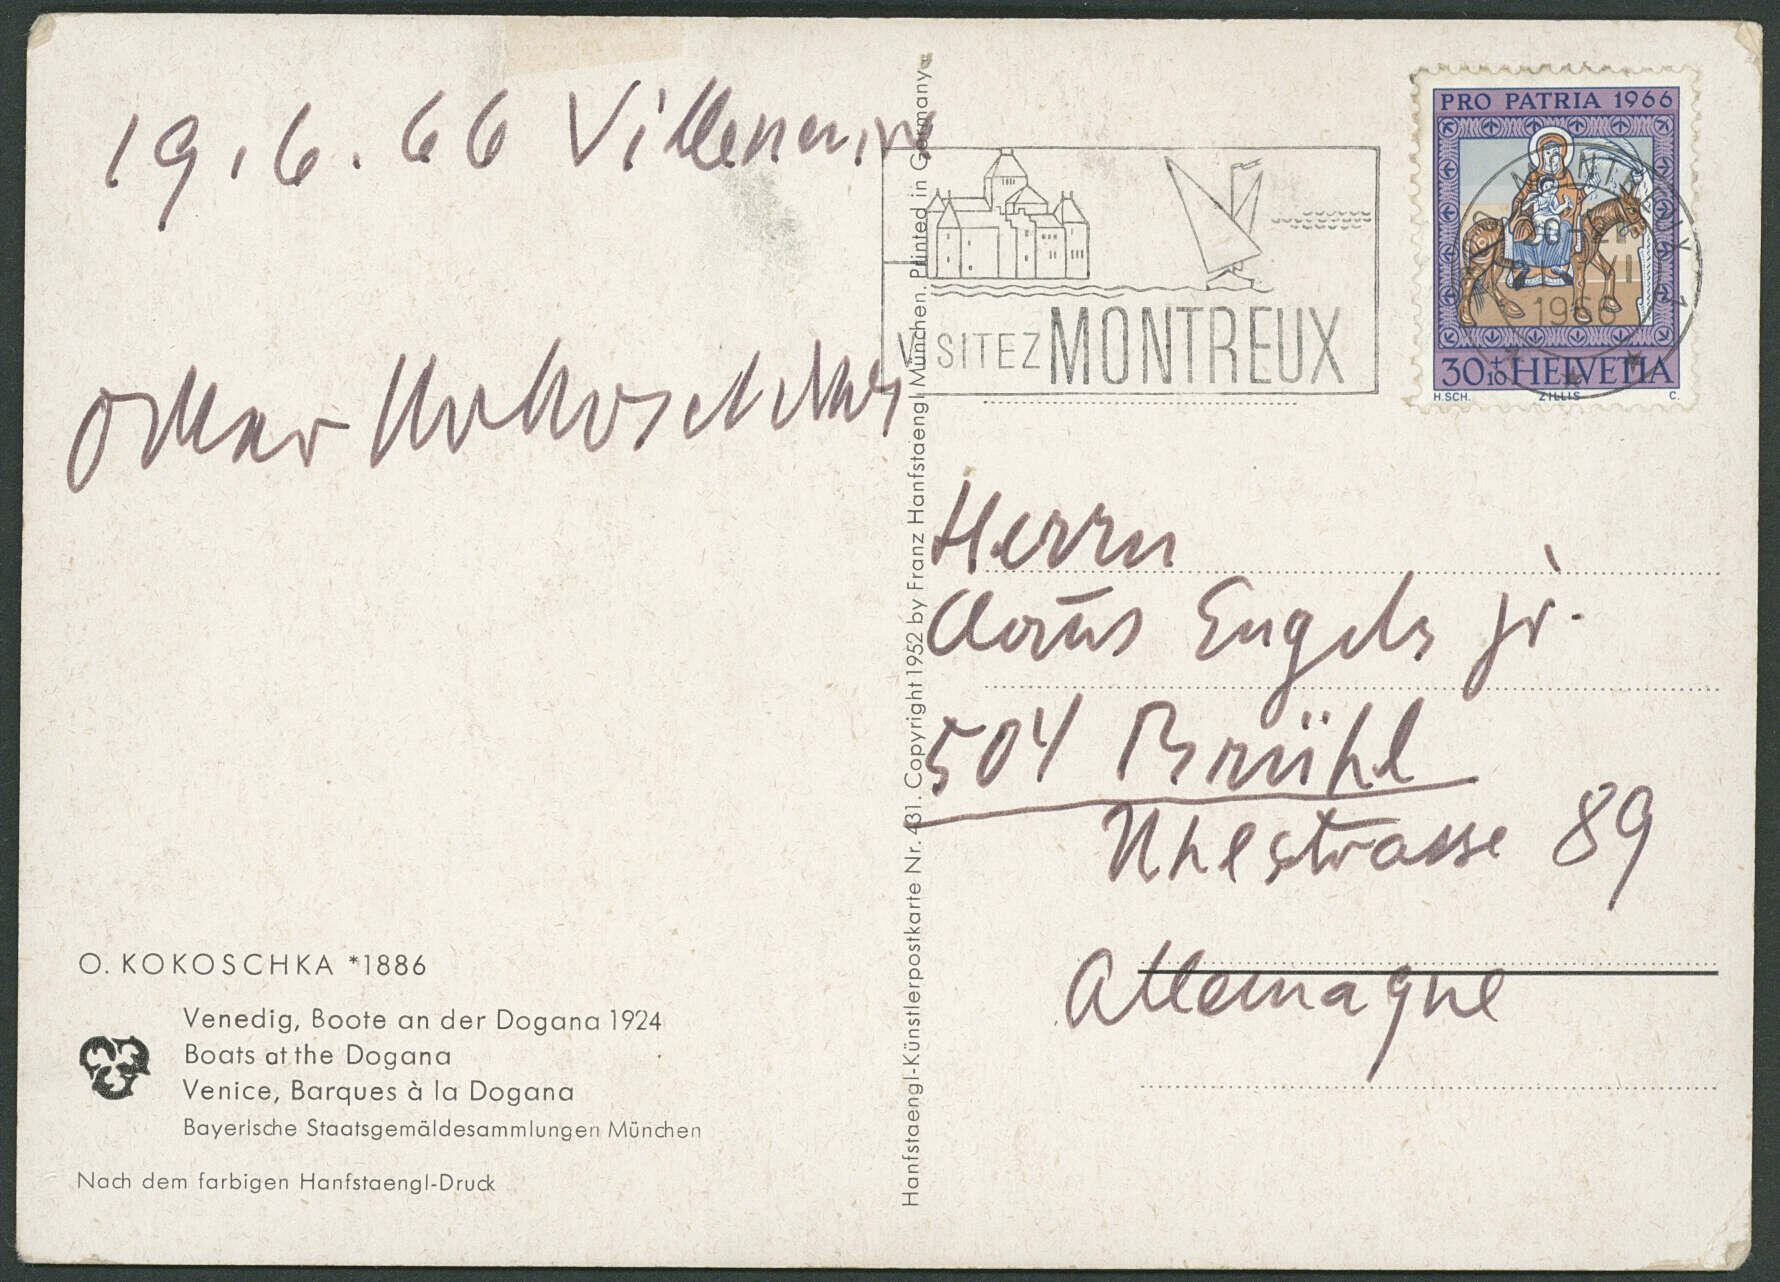 19.6.66 Villeneuve
Oskar Kokoschka
O. KOKOSCHKA *1886
Venedig, Boote an der Dogana 1924
Boats at the Dogana
Venice, Barques à la Dogana
Bayerische Staatsgemäldesammlungen München
Nach dem farbigen Hanfstaengl-Druck
Hanfstaengl-Künstlerpostkarte Nr. 431. Copyright 1952 by Franz Hanfstaengl München. Printed in Germany
VISITEZ MONTREUX
PRO PATRIA 1966
1966
30+10 HELVETIA
H.SCH. ZILLIS C.
Herrn
Claus Engels jr.
504 Brühl
Uhlstrasse 89
Allemagne